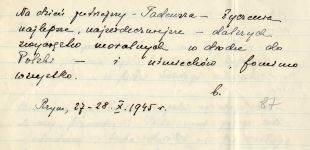 Na dzień jutrzejszy - Tadeusza - życzenia
najlepsze, najserdeczniejsze - dalszych
zwycięstw moralnych w drodze do
Polski - i uśmiechów, pomimo
wszystko.
b.
Rzym, 27-28. X. 1945 r.
87